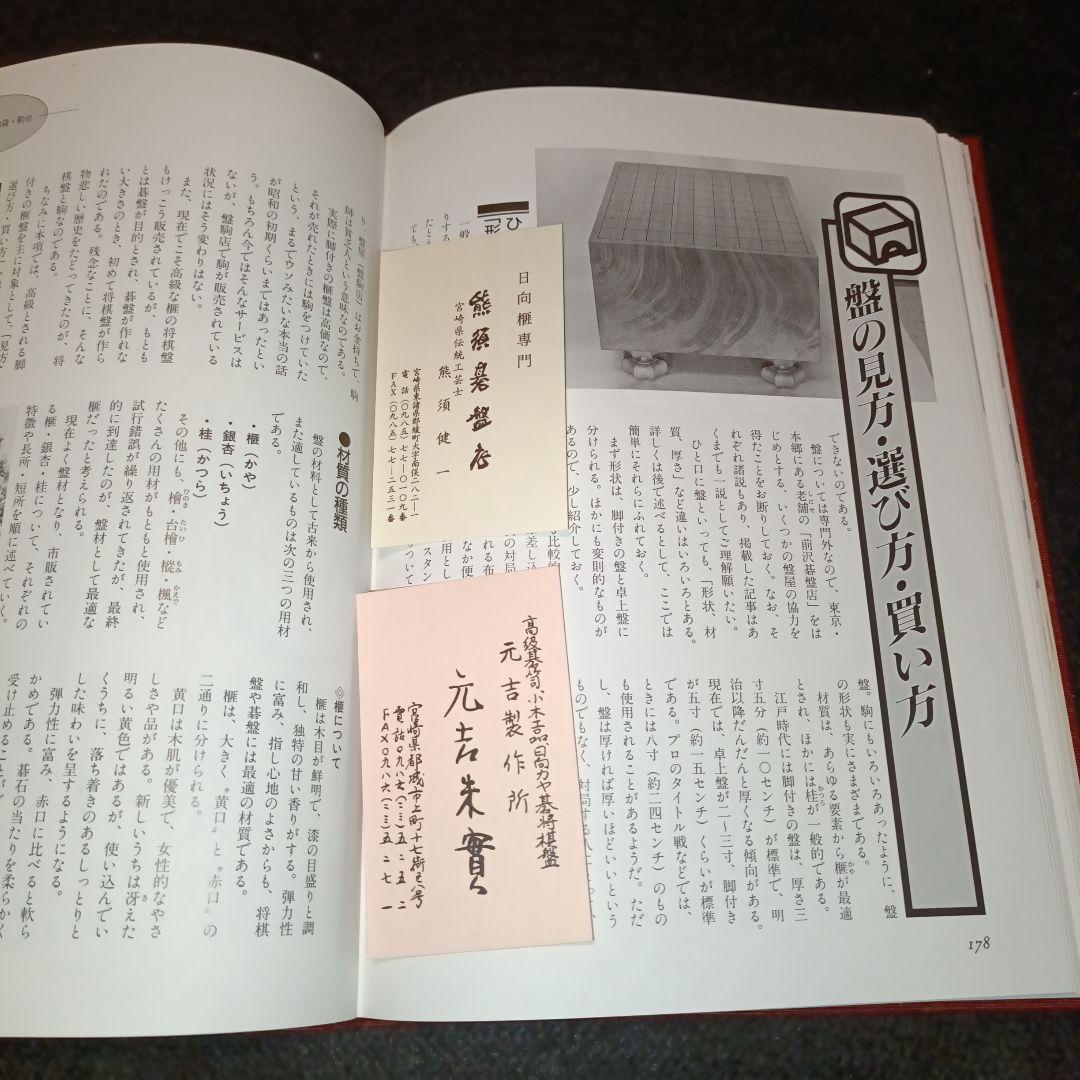 盤の見方・選び方・買い方
できないのである。
盤については専門外なので、東京・
本郷にある老舗の「前沢碁盤店」をは
じめとする、いくつかの盤屋の協力を
得たことをお断りしておく。なお、そ
れぞれ諸説もあり、掲載した記事はあ
くまでも一説としてご理解願いたい。
ひと口に盤といっても、「形状、材
質、厚さ」など違いはいろいろとある。
詳しくは後で述べるとして、ここでは
簡単にそれらにふれておく。
まず形状は、脚付きの盤と卓上盤に
分けられる。ほかにも変則的なものが
あるので、少し紹介しておく。
盤。駒にもいろいろあったように、盤
の形状も実にさまざまである。
材質は、あらゆる要素から榧が最適
とされ、ほかには桂が一般的である。
江戸時代には脚付きの盤は、厚さ三
寸五分（約一〇センチ）が標準で、明
治以降だんだんと厚くなる傾向がある。
現在では、卓上盤が二〜三寸、脚付き
が五寸（約一五センチ）くらいが標準
である。プロのタイトル戦などでは、
ときには八寸（約二四センチ）のもの
も使用されることがあるようだ。ただ
し、盤は厚ければ厚いほどいいという
ものでもなく、対局する
178
日向榧専門
熊須碁盤店
宮崎県伝統工芸士
熊須健一
宮崎県東諸県郡綾町大字南俣二八二-一
電話（〇九八五）七七-〇一〇九番
FAX（〇九八五）七七-二五二一番
高級
元吉製作所
元吉朱實
宮崎県都城市上町十七街区八号
り、盤屋（盤駒店）はお金持ちで、駒
師は貧乏人という意味なのである。
実際に脚付きの榧盤は高価なので、
それが売れたときには駒をつけていた
という、まるでウソみたいな本当の話
が昭和の初期くらいまではあったとい
う。もちろん今ではそんなサービスは
ないが、盤駒店で駒が販売されている
状況にはそう変わりはない。
また、現在でこそ高級な榧の将棋盤
もけっこう販売されているが、もとも
とは碁盤が目的とされ、碁盤が作れな
い大きさのとき、初めて将棋盤が作ら
れたのである。残念なことに、そんな
物悲しい歴史をたどってきたのが、将
棋盤と駒なのである。
ちなみに本項では、高級とされる脚
付きの榧盤を主に対象として、「見方・
選び方・買い方」
●材質の種類
盤の材料として古来から使用され、
また適しているものは次の三つの用材
である。
・榧（かや）
・銀杏（いちょう）
・桂（かつら）
その他にも、檜・台檜・樅・楓など
たくさんの用材がもともと使用され、
試行錯誤が繰り返されてきたが、最終
的に到達したのが、盤材として最適な
榧だったと考えられる。
現在よく盤材となり、市販されてい
る榧・銀杏・桂について、それぞれの
特徴や長所、短所を順に述べていく。
◇榧について
榧は木目が鮮明で、漆の目盛りと調
和し、独特の甘い香りがする。弾力性
に富み、指し心地のよさからも、将棋
盤や碁盤には最適の材質である。
榧は、大きく〝黄口〟と〝赤口〟の
二通りに分けられる。
黄口は木肌が優美で、女性的なやさ
しさや品がある。新しいうちは冴えた
明るい黄色ではあるが、使い込んでい
くうちに、落ち着きのあるしっとりと
した味わいを呈するようになる。
弾力性に富み、赤口に比べると軟ら
かめである。碁石の当たりを柔らかく
受け止めることが